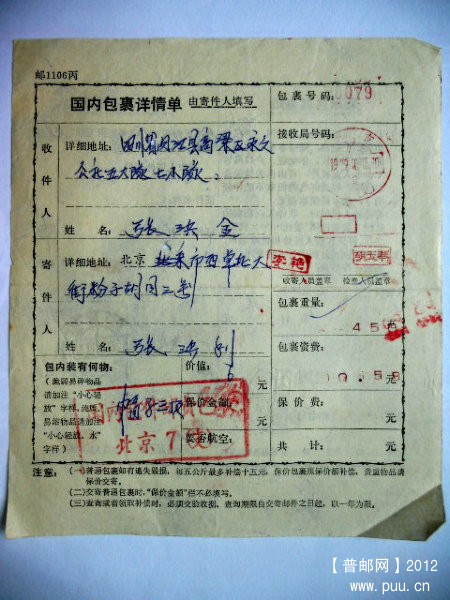 邮1106丙
国内包裹详情单 由寄件人填写
包裹号码: 0079
收件人
详细地址: 四川省
公社五大队七小队.
接收局号码:
姓名: 张洪金
寄件人
详细地址: 北京 北京市西单北大
街粉子胡同三号
李艳
胡玉琴
收寄人员盖章 检查人员盖章
姓名: 张洪
包裹重量: 45 克
包裹资费: 0.58 元
包内装有何物:
(脆弱易碎物品
请加注“小心轻
放”字样,流质
易溶物品请加注
“小心轻放、水”
字样)
价值: 元
保价金额: 元
航空:
保价费: 元
共计: 元
北京7
注意: (一)普通包裹如有遗失毁损,每五公斤最多补偿十五元,保价包裹照保价额补偿,贵重物品请
保价交寄。
(二)交寄普通包裹时,“保价金额”栏不必填写。
(三)查询或者领取补偿时,必须交验收据,查询期限自交寄邮件之日起,以一年为限。
【普邮网】2012
www.puu.cn